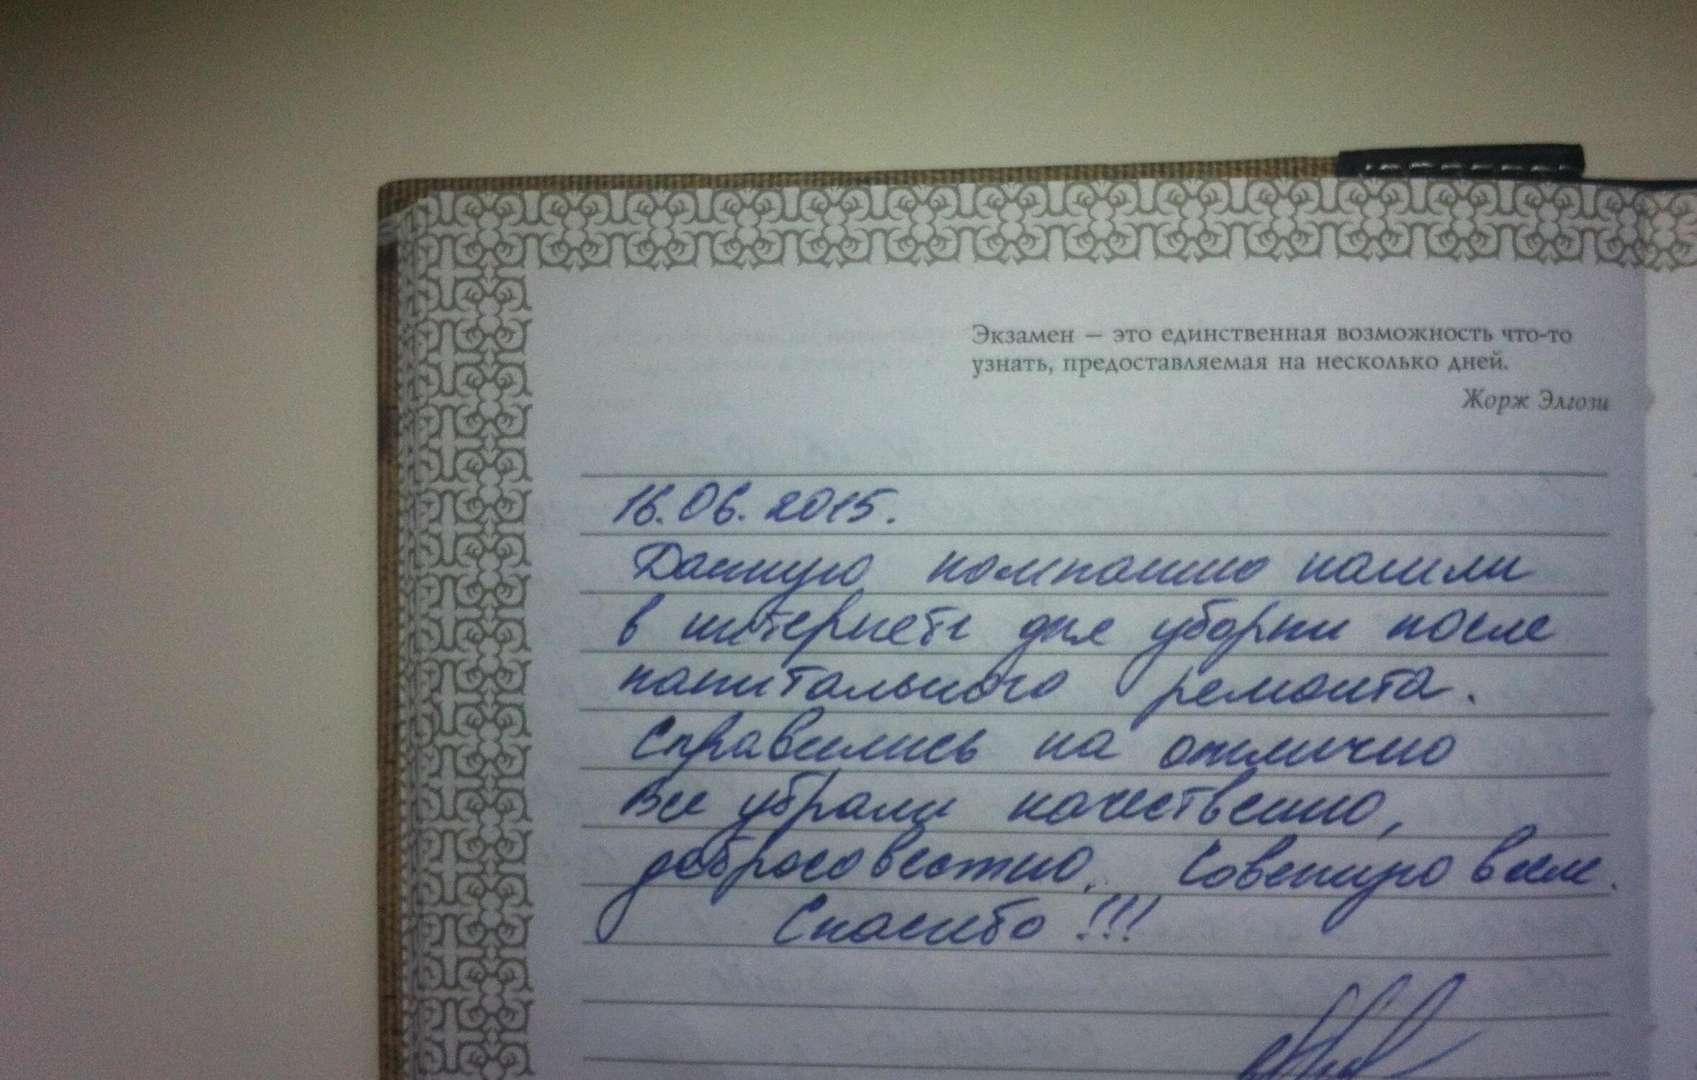 Экзамен — это единственная возможность что-то
узнать, предоставляемая на несколько дней.
Жорж Элгози
16.06.2015.
Данную компанию нашли
в интернете для уборки после
капитального ремонта.
Справились на отлично
Все убрали качественно,
добросовестно. Советую всем.
Спасибо!!!